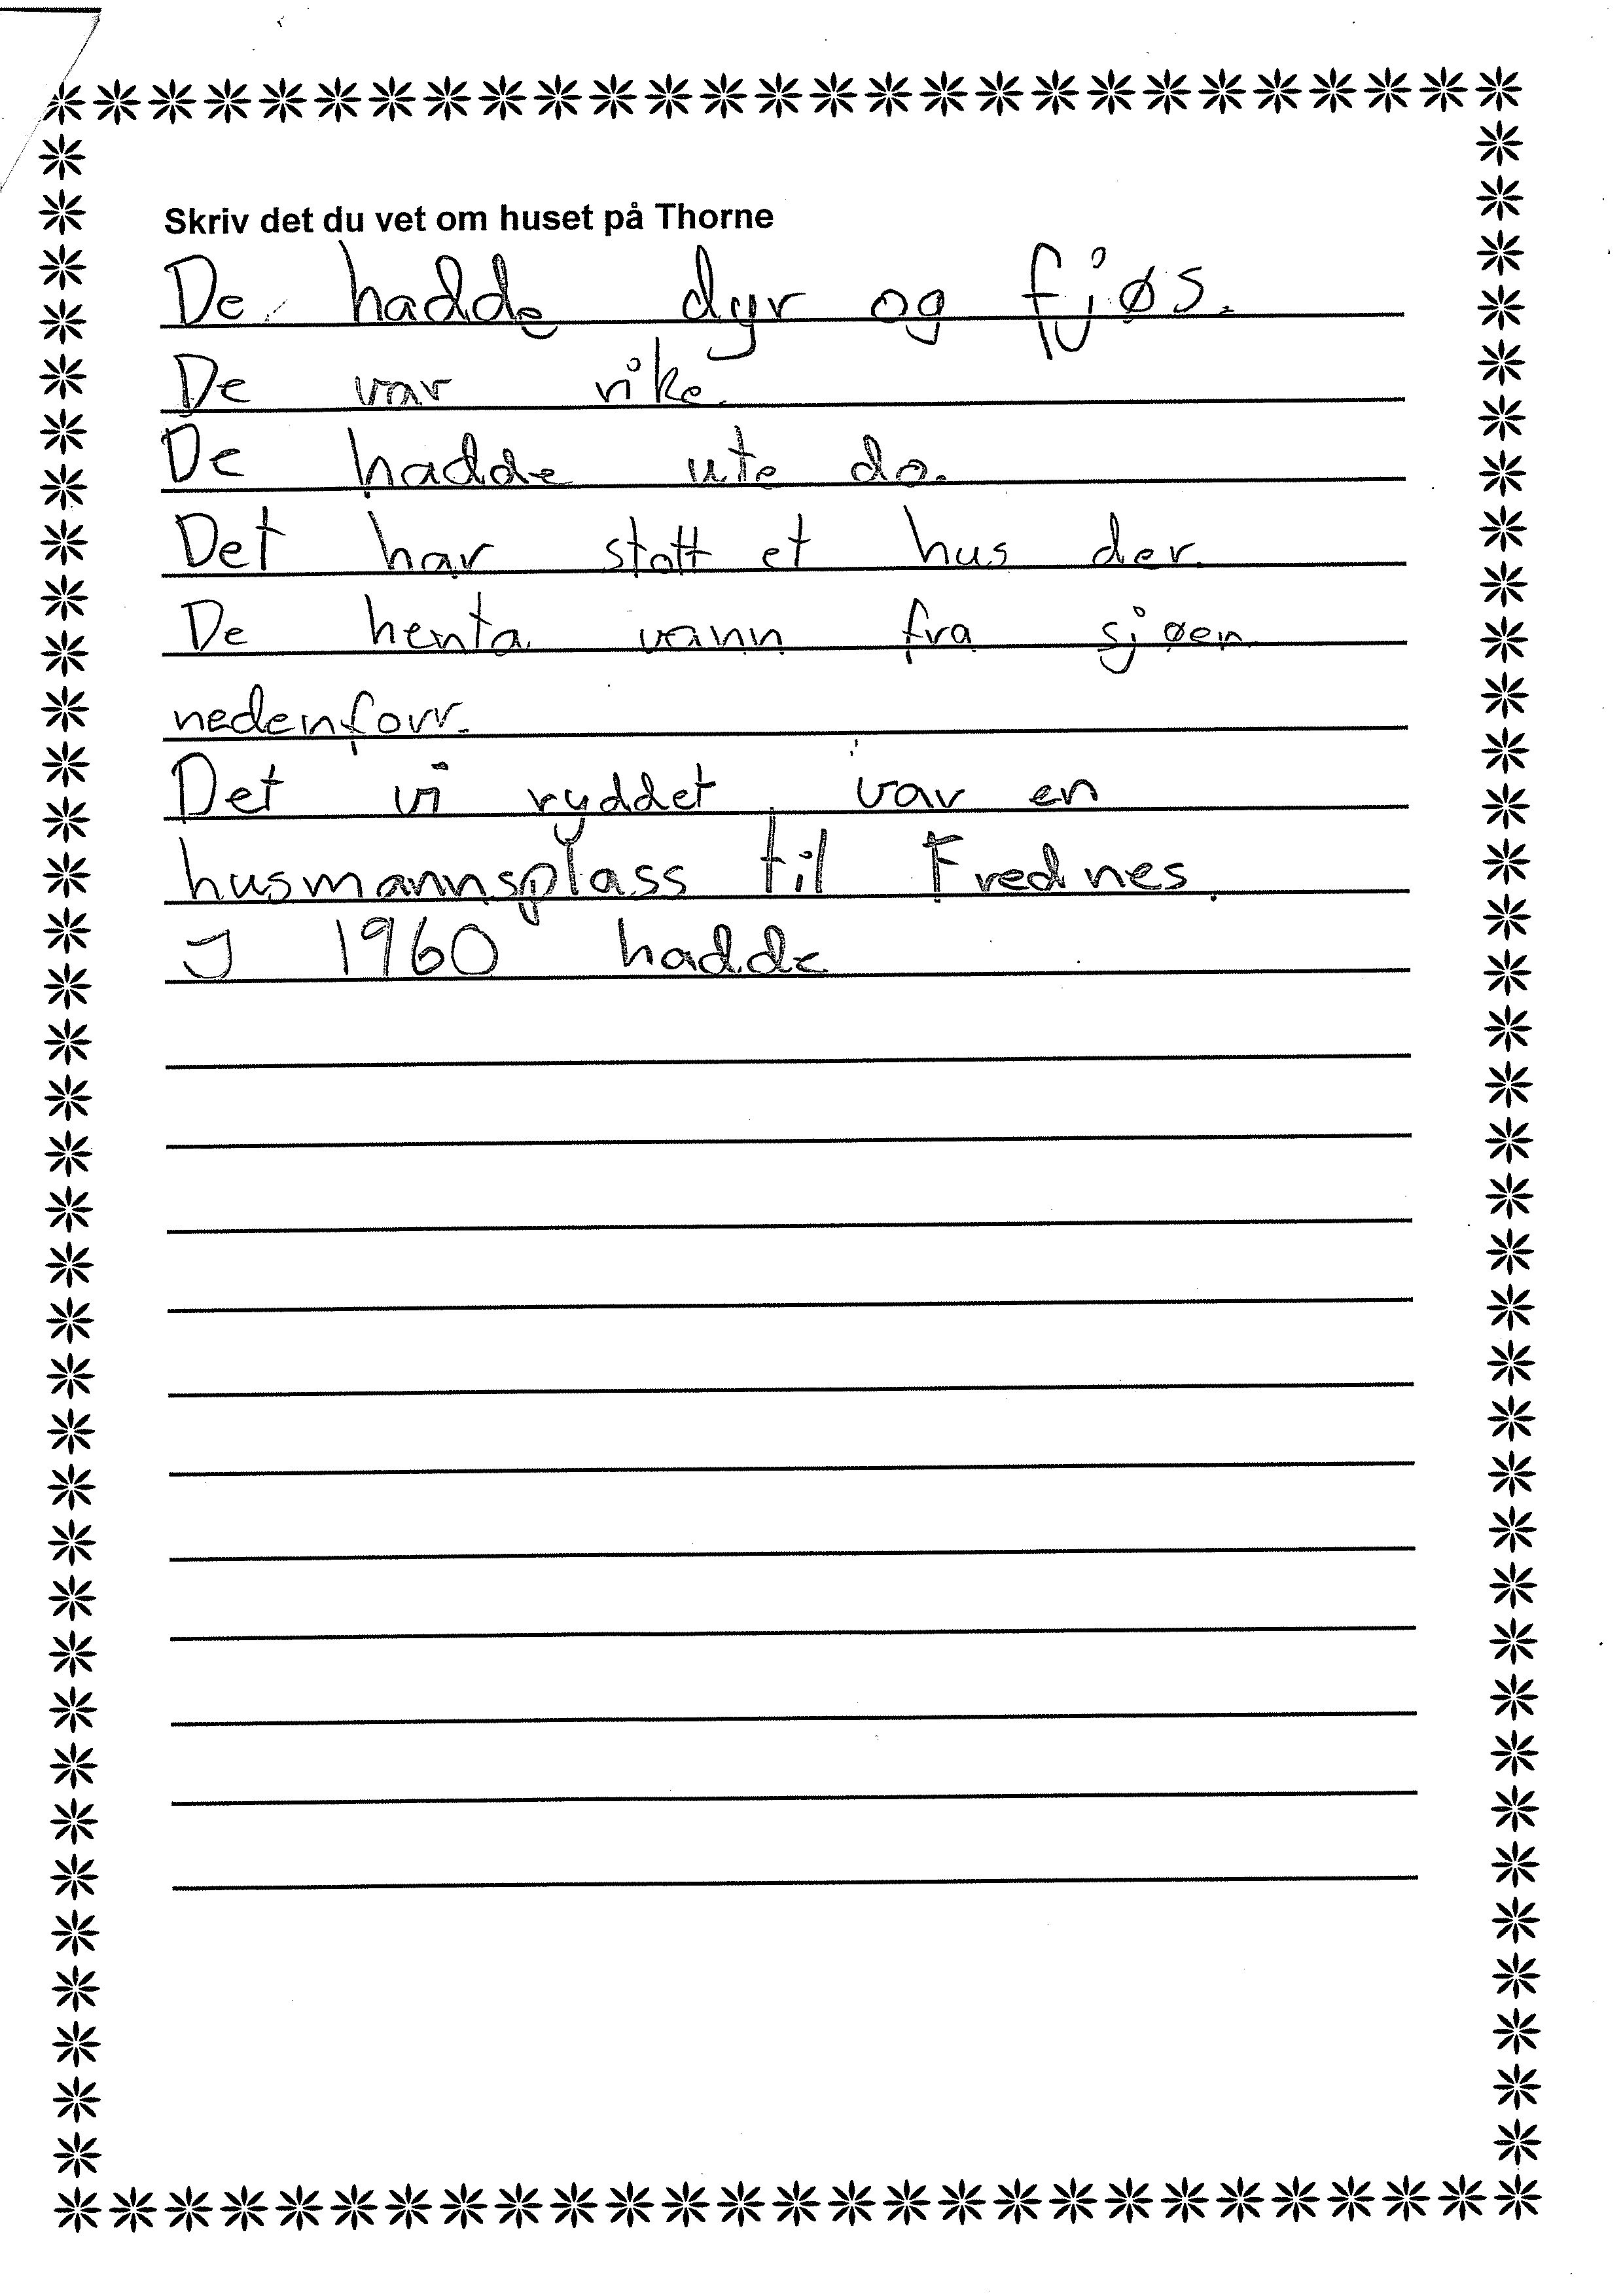 Skriv det du vet om huset på Thorne
De hadde dyr og fjøs.
De var rike.
De hadde ute do.
Det har stott et hus der.
De henta vann fra sjøen
nedenforr.
Det vi ryddet var en
husmannsplass til Frednes.
I 1960 hadde